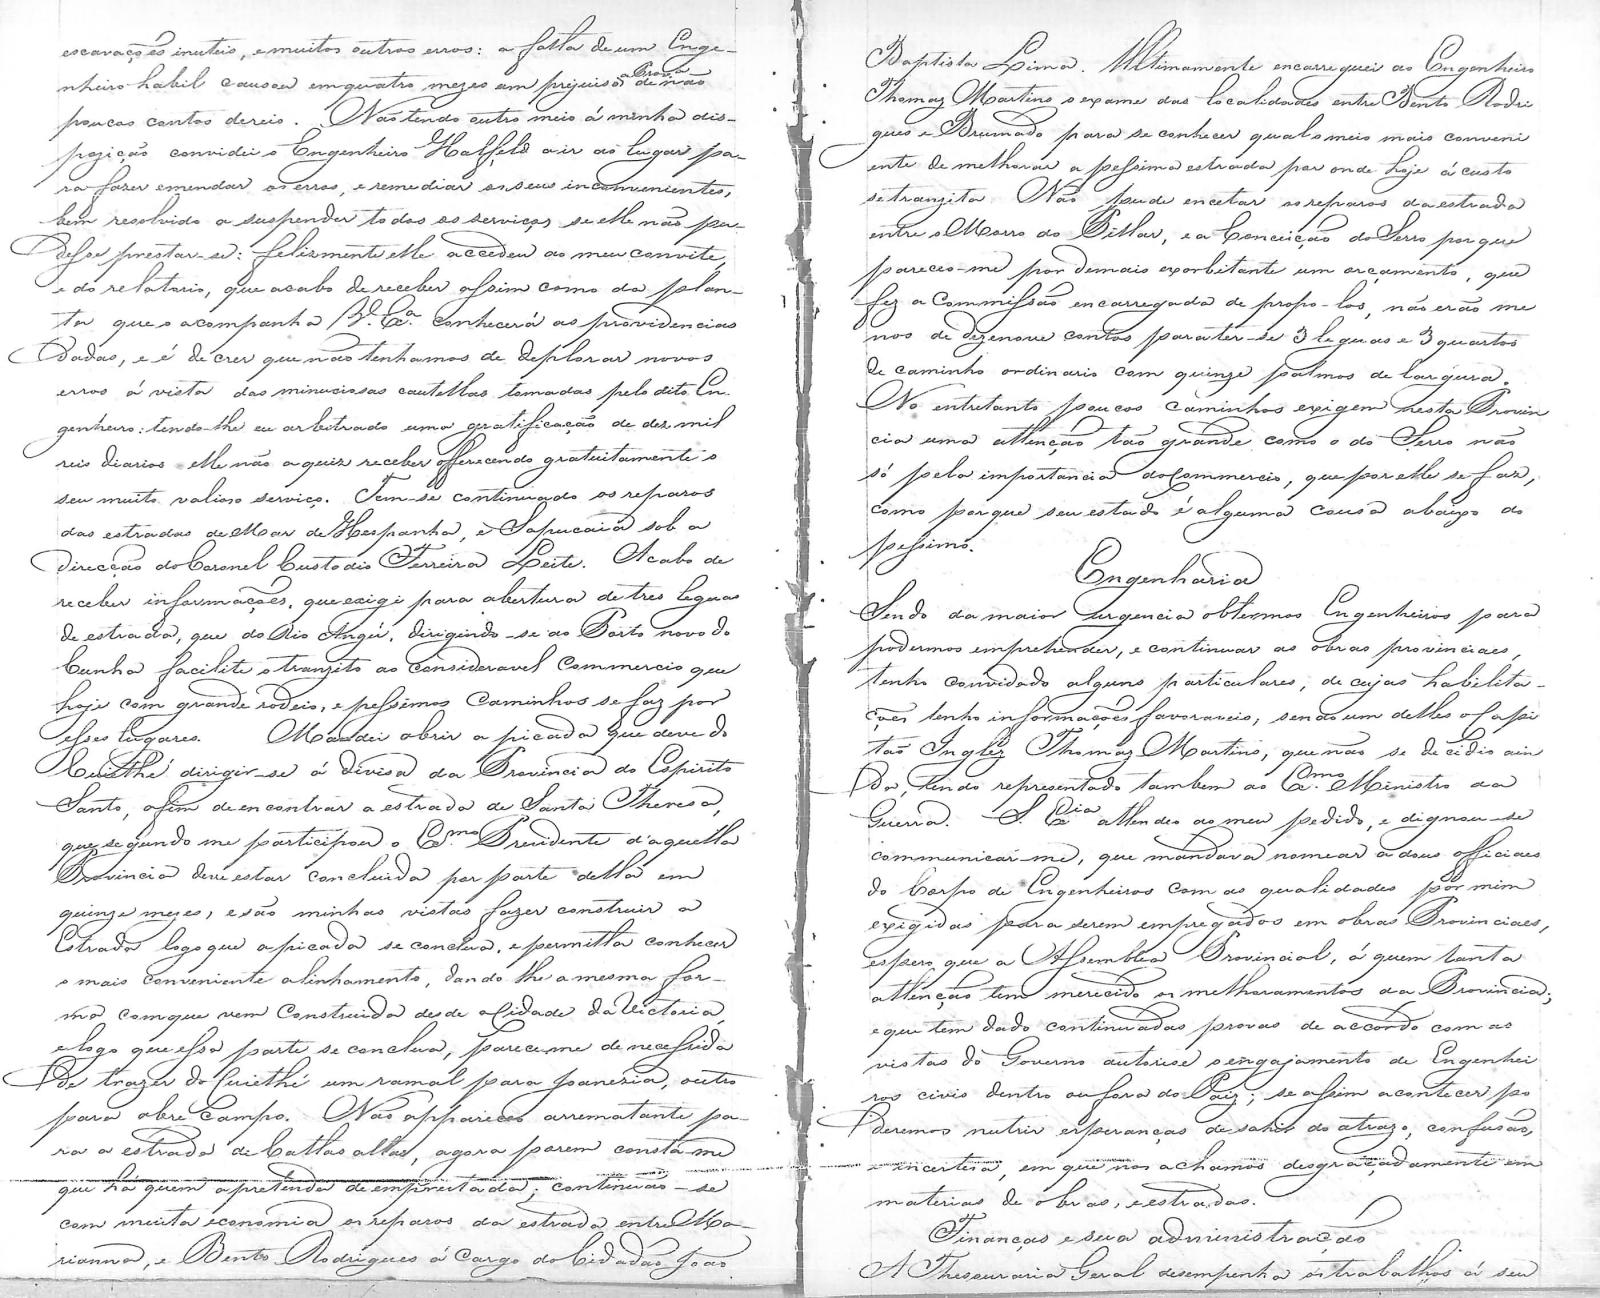 escavações inuteis, e muitos outros erros: a falta de um Enge-
nheiro habil causou em quatro mezes um prejuiso á Prov.a de não
poucos contos de reis. Não tendo outro meio á minha dis-
pozição convidei o Engenheiro Halfeld a ir ao lugar pa-
ra fazer emendar os erros, e remediar os seus inconvenientes,
bem resolvido a suspender todos os serviços se elle não po-
desse prestar-se: felizmente elle accedeu ao meu convite,
e do relatorio, que acabo de receber assim como da plan-
ta que o acompanha V. Ex.a conhecerá as providencias
dadas, e é de crer que não tenhamos de deplorar novos
erros á vista das minuciosas cautellas tomadas pelo dito En-
genheiro: tendo-lhe eu arbitrado uma gratificação de dez mil
reis diarios elle não a quiz receber offerecendo gratuitamente o
seu muito valioso serviço. Tem-se continuado os reparos
das estradas de Mar de Hespanha, e Sapucaia sob a
direcção do Coronel Custodio Ferreira Leite. Acabo de
receber informações, que exigi para abertura de tres leguas
de estrada, que do Rio Angú, dirigindo-se ao Porto novo do
Cunha facilite o tranzito ao consideravel Commercio que
hoje com grande rodeio, e pessimos Caminhos se faz por
esses lugares. Mandei abrir a picada que deve do
Cuiethé dirigir-se á divisa da Provincia do Espirito
Santo, afim de encontrar a estrada de Santa Theresa,
que segundo me participou o Ex.mo Presidente d'aquella
Provincia deve estar concluida por parte della em
quinze mezes, e são minhas vistas fazer construir a
Estrada logo que a picada se conclua, e permitta conhecer
o mais conveniente alinhamento, dando lhe a mesma for-
ma com que vem Construida desde a Cidade da Victoria,
e logo que essa parte se conclua, parece me de necessida
de trazer do Cuiethé um ramal para Joanezia, outro
para abre Campo. Não appareceo arrematante pa-
ra a estrada de Cattas altas, agora porem consta me
que há quem a pretenda de empreitada; continuão-se
com muita economia os reparos da estrada entre Ma-
rianna, e Bento Rodrigues á Cargo do Cidadão João
Baptista Lima. Ultimamente encarreguei ao Engenheiro
Thomaz Martins o exame das localidades entre Bento Rodri
gues e Brumado para se conhecer qual o meio mais conveni
ente de melhorar a pessima estrada por onde hoje á custo
se tranzita. Não pude encetar os reparos da estrada
entre o Morro do Pillar, e a Conceição do Serro por que
pareceo-me por demais exorbitante um orçamento, que
fez a Commissão encarregada de propo-los, não erão me
nos de dezenove contos para ter-se 3 leguas e 3 quartos
de caminho ordinario com quinze palmos de largura.
No entretanto poucos caminhos exigem nesta Provin
cia uma attenção tão grande como o do Serro não
só pela importancia do Commercio, que por elle se faz,
como porque seu estado é alguma causa abaixo do
pessimo.
Engenharia
Sendo da maior urgencia obtermos Engenheiros para
podermos emprehender, e continuar as obras provinciaes,
tenho convidado alguns particulares, de cujas habilita-
ções tenho informações favoraveis, sendo um delles o Capi
tão Inglez Thomaz Martins, que não se decidio ain
da, tendo representado tambem ao Ex.mo Ministro da
Guerra. S. Ex.cia attendeo ao meu pedido, e dignou-se
communicar-me, que mandava nomear a dous officiaes
do Corpo de Engenheiros com as qualidades por mim
exigidas para serem empregados em obras Provinciaes,
espero que a Assemblea Provincial, á quem tanta
attenção tem merecido os melhoramentos da Provincia;
e que tem dado continuadas provas de accordo com as
vistas do Governo autorise o engajamento de Engenhei
ros civis dentro ou fora do Paiz; se assim acontecer po
deremos nutrir esperanças de sahir do atrazo, confusão,
e incertesa, em que nos achamos desgraçadamente em
materias de obras, e estradas.
Finanças e sua administração
A Thesouraria Geral desempenha os trabalhos á seu